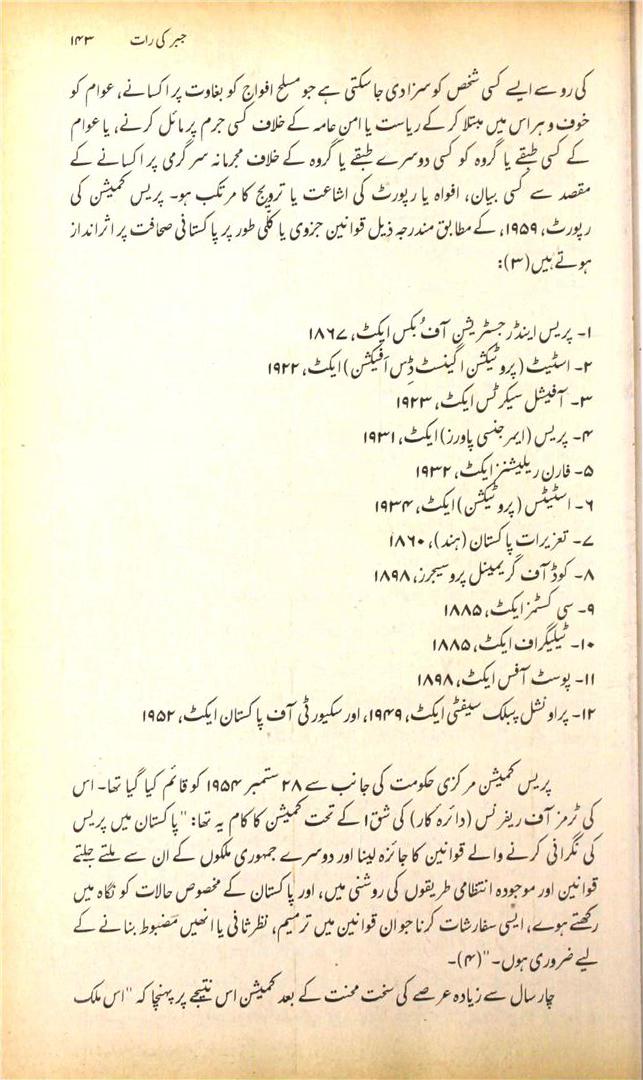 جبر کی رات ۱۴۳
کی رو سے ایسے کسی شخص کو سزا دی جا سکتی ہے جو مسلح افواج کو بغاوت پر اکسانے، عوام کو
خوف و ہراس میں مبتلا کر کے ریاست یا امن عامہ کے خلاف کسی جرم پر مائل کرنے، یا عوام
کے کسی طبقے یا گروہ کو کسی دوسرے طبقے یا گروہ کے خلاف مجرمانہ سرگرمی پر اکسانے کے
مقصد سے کسی بیان، افواہ یا رپورٹ کی اشاعت یا ترویج کا مرتکب ہو۔ پریس کمیشن کی
رپورٹ، ۱۹۵۹، کے مطابق مندرجہ ذیل قوانین جزوی یا کلّی طور پر پاکستانی صحافت پر اثرانداز
ہوتے ہیں (۳):
۱۔ پریس اینڈ رجسٹریشن آف بُکس ایکٹ، ۱۸۶۷
۲۔ اسٹیٹ (پروٹیکشن اگینسٹ ڈِس اَفیکشن) ایکٹ، ۱۹۲۲
۳۔ آفیشل سیکرٹس ایکٹ، ۱۹۲۳
۴۔ پریس (ایمرجنسی پاورز) ایکٹ، ۱۹۳۱
۵۔ فارن ریلیشنز ایکٹ، ۱۹۳۲
۶۔ اسٹیٹس (پروٹیکشن) ایکٹ، ۱۹۳۴
۷۔ تعزیرات پاکستان (ہند)، ۱۸۶۰
۸۔ کوڈ آف کریمینل پروسیجرز، ۱۸۹۸
۹۔ سی کسٹمز ایکٹ، ۱۸۸۵
۱۰۔ ٹیلیگراف ایکٹ، ۱۸۸۵
۱۱۔ پوسٹ آفس ایکٹ، ۱۸۹۸
۱۲۔ پراونشل پبلک سیفٹی ایکٹ، ۱۹۴۹، اور سکیورٹی آف پاکستان ایکٹ، ۱۹۵۲
پریس کمیشن مرکزی حکومت کی جانب سے ۲۸ ستمبر ۱۹۵۴ کو قائم کیا گیا تھا۔ اس
کی ٹرمز آف ریفرنس (دائرہ کار) کی شق ۱ کے تحت کمیشن کا کام یہ تھا: "پاکستان میں پریس
کی نگرانی کرنے والے قوانین کا جائزہ لینا اور دوسرے جمہوری ملکوں کے ان سے ملتے جلتے
قوانین اور موجودہ انتظامی طریقوں کی روشنی میں، اور پاکستان کے مخصوص حالات کو نگاہ میں
رکھتے ہوے، ایسی سفارشات کرنا جو ان قوانین میں ترمیم، نظرثانی یا انھیں مضبوط بنانے کے
لیے ضروری ہوں۔" (۴)۔
چار سال سے زیادہ عرصے کی سخت محنت کے بعد کمیشن اس نتیجے پر پہنچا کہ "اس ملک